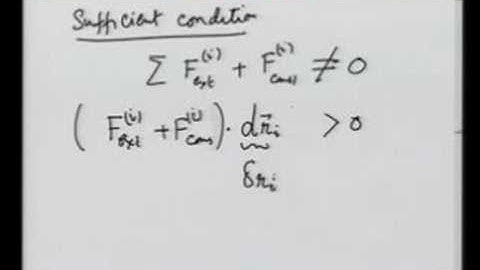 Sufficient condition
Σ F_ext^(i) + F_cons^(i) ≠ 0
(F_ext^(i) + F_cons^(i)) · dr⃗_i > 0
δr_i